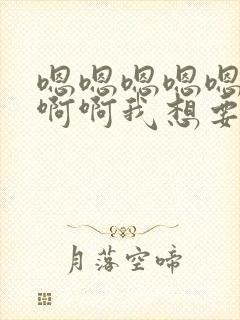 嗯嗯嗯嗯嗯
啊啊我想要
月落空啼